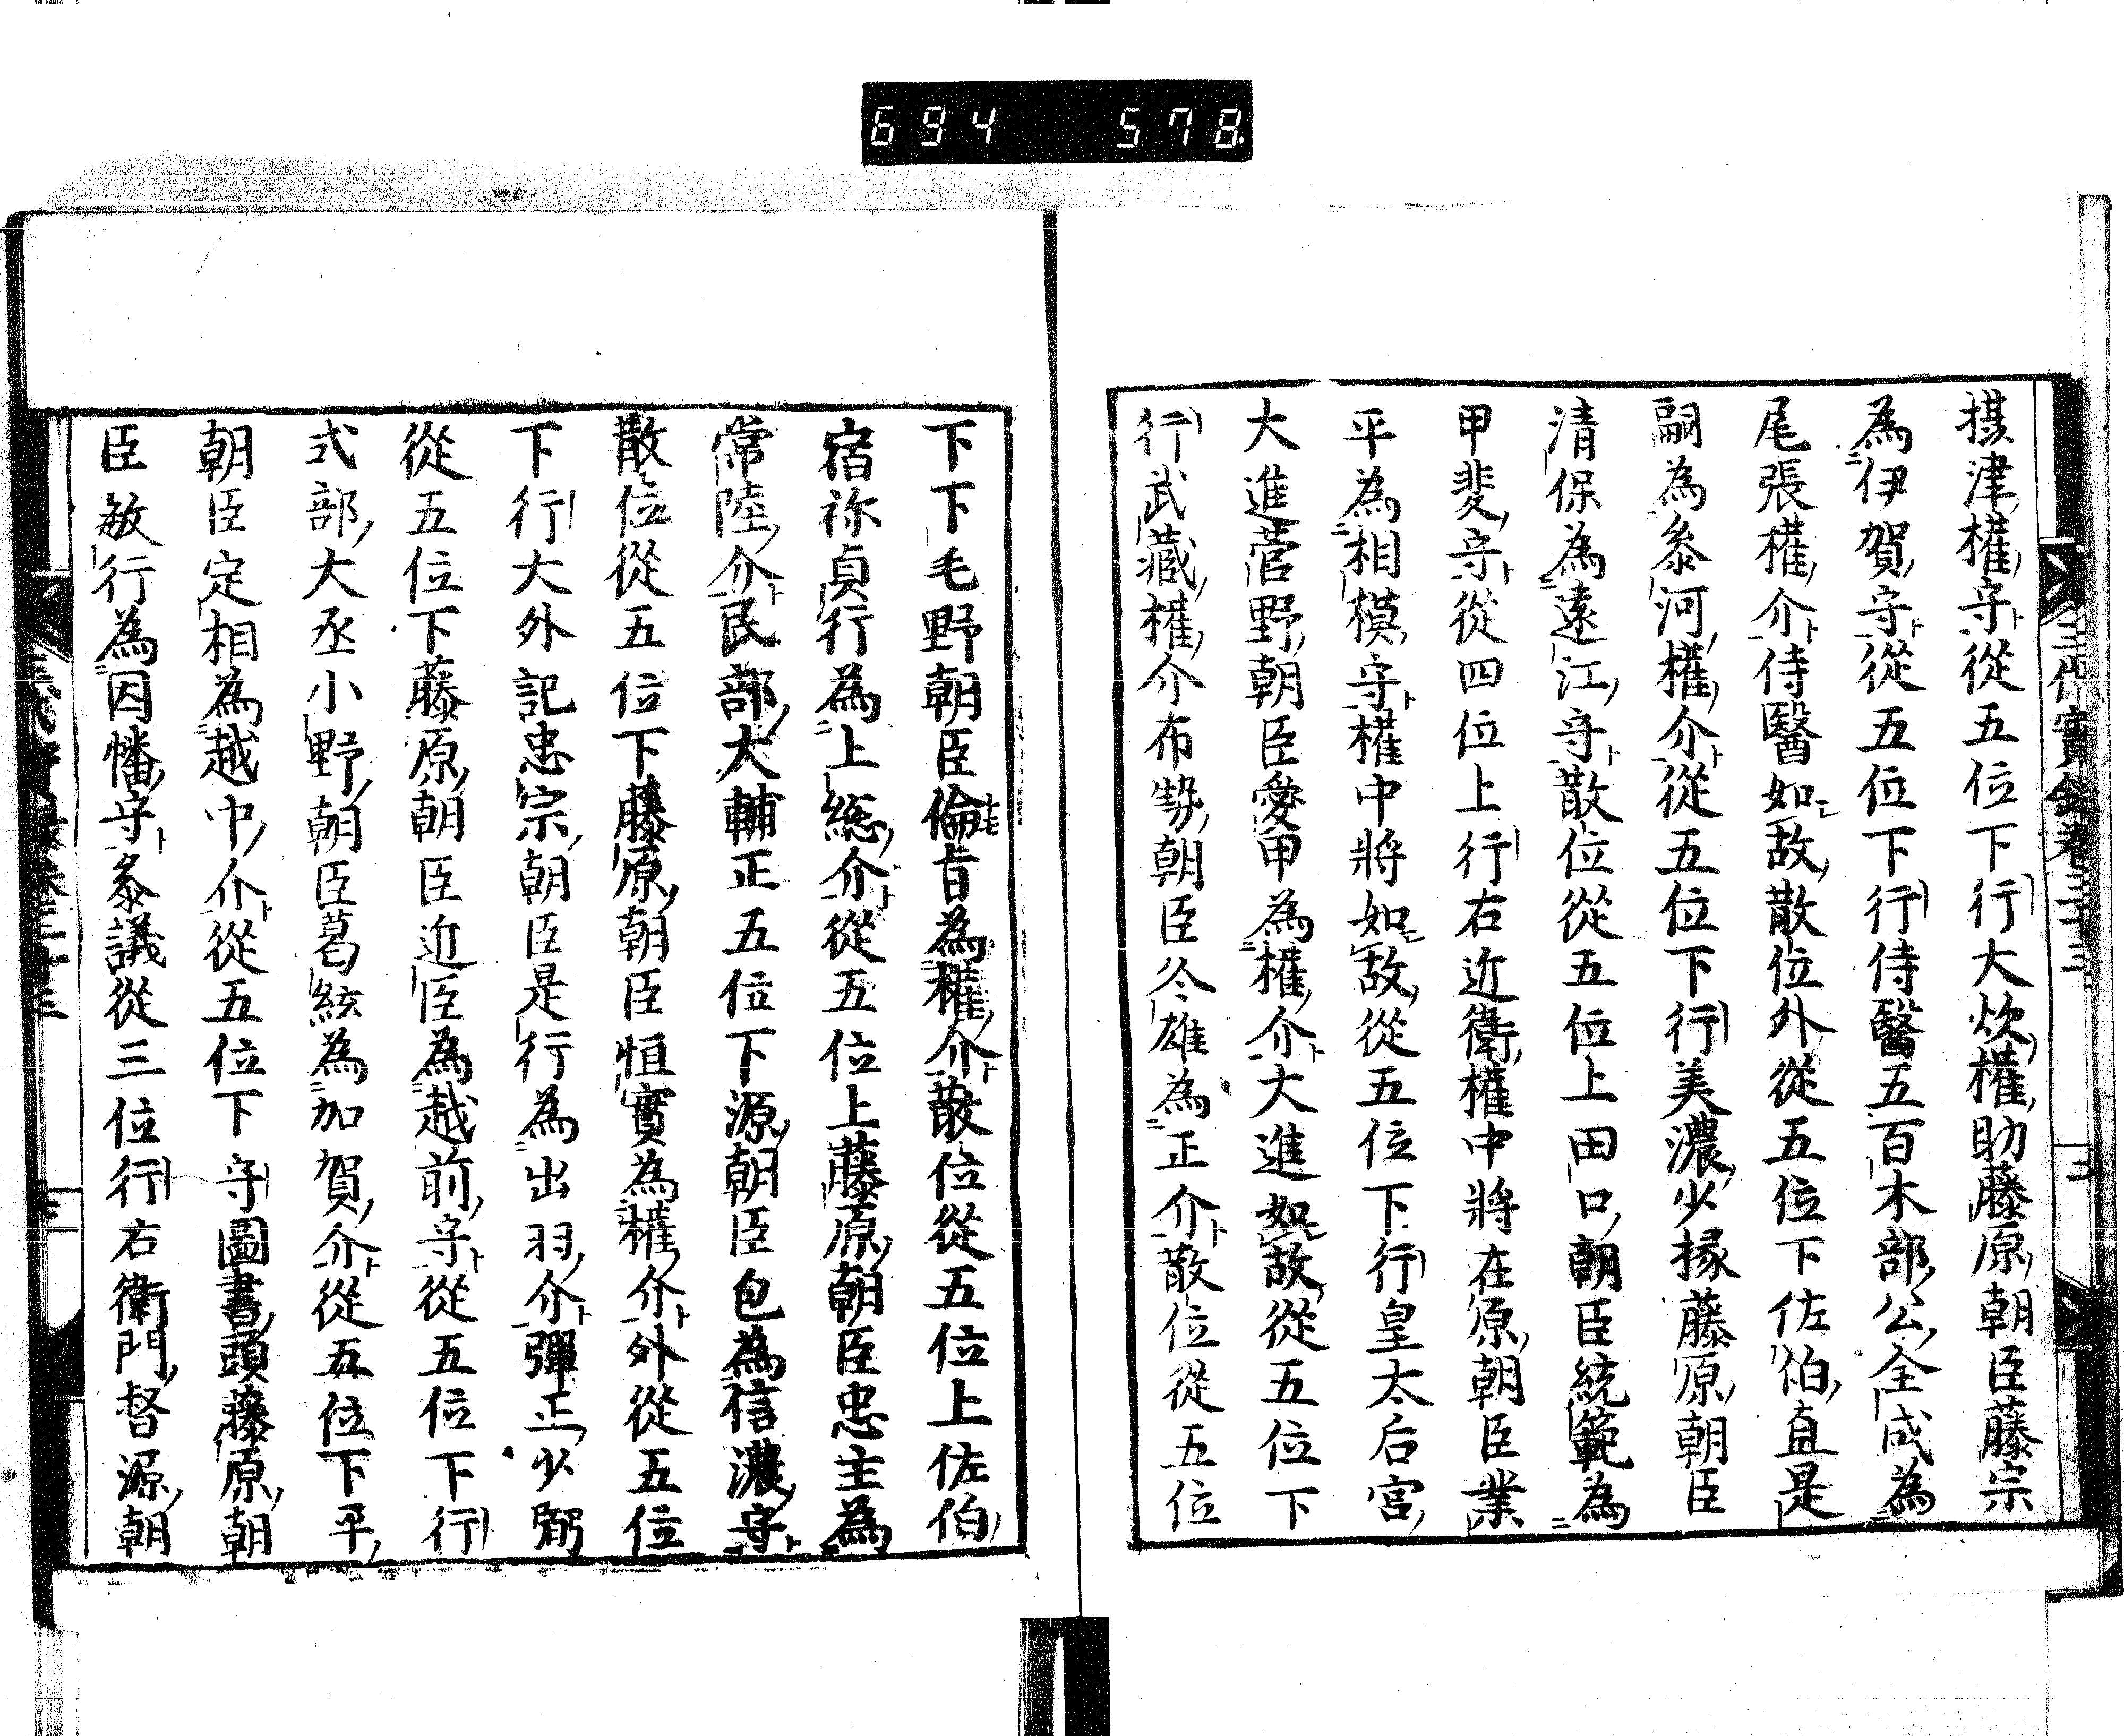 694 578
三代實録卷三十三 二
攝津權守從五位下行大炊權助藤原朝臣藤宗
為伊賀守從五位下行侍醫五百木部公全成為
尾張權介侍醫如故散位外從五位下佐伯直是
嗣為叅河權介從五位下行美濃少掾藤原朝臣
清保為遠江守散位從五位上田口朝臣統範為
甲斐守從四位上行右近衛權中將在原朝臣業
平為相模守權中將如故從五位下行皇太后宮
大進菅野朝臣愛甲為權介大進如故從五位下
行武藏權介布勢朝臣冬雄為正介散位從五位
下下毛野朝臣倫旨為權介散位從五位上佐伯
宿祢貞行為上総介從五位上藤原朝臣忠主為
常陸介民部大輔正五位下源朝臣包為信濃守
散位從五位下藤原朝臣恒實為權介外從五位
下行大外記忠宗朝臣是行為出羽介彈正少弼
從五位下藤原朝臣近臣為越前守從五位下行
式部大丞小野朝臣葛絃為加賀介從五位下平
朝臣定相為越中介從五位下守圖書頭藤原朝
臣敏行為因幡守叅議從三位行右衛門督源朝